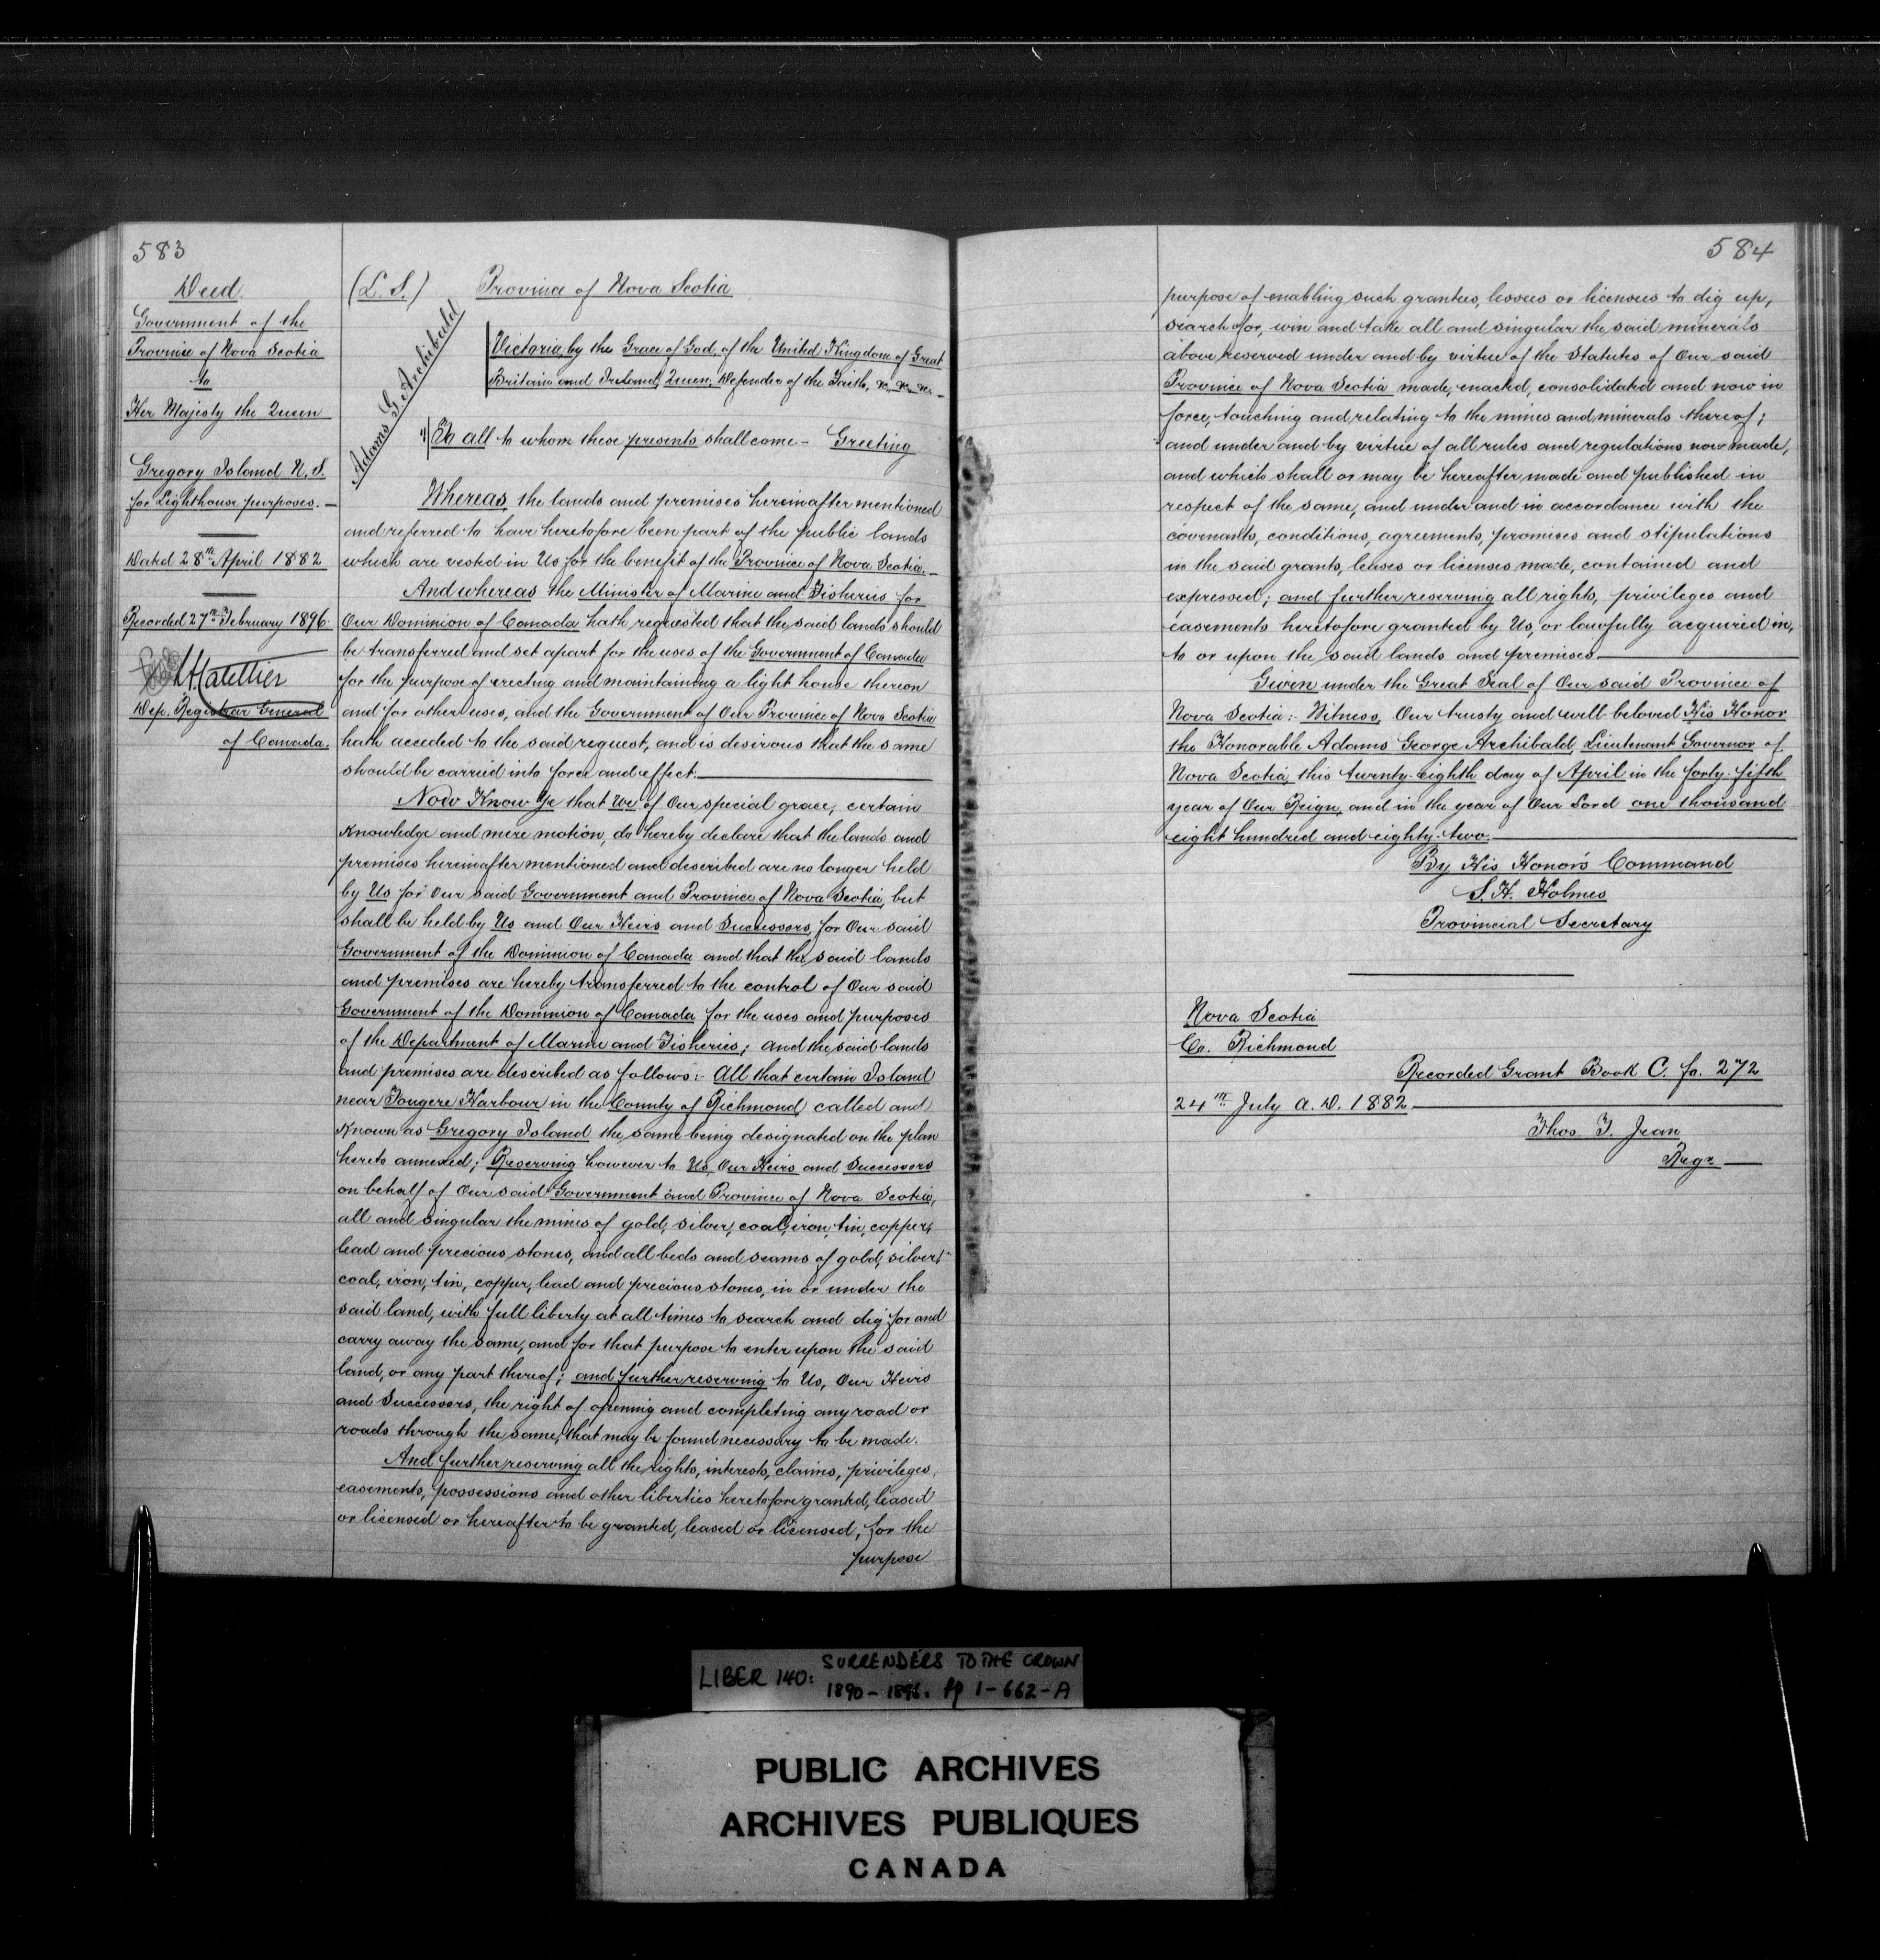 583
Deed.
Government of the
Province of Nova Scotia
to
Her Majesty the Queen
Gregory Island N.S.
for Lighthouse purposes.
Dated 28th April 1882
Recorded 27th February 1896.
Dep. Registrar General
of Canada.
(L.S.) Province of Nova Scotia
Adams G. Archibald
Victoria, by the Grace of God, of the United Kingdom of Great
Britain and Ireland, Queen, Defender of the Faith, &c., &c., &c. —
To all to whom these presents shall come — Greeting
Whereas, the lands and premises hereinafter mentioned
and referred to have heretofore been part of the public lands
which are vested in Us for the benefit of the Province of Nova Scotia. —
And whereas the Minister of Marine and Fisheries for
Our Dominion of Canada hath requested that the said lands should
be transferred and set apart for the uses of the Government of Canada
for the purpose of erecting and maintaining a light house thereon
and for other uses, and the Government of Our Province of Nova Scotia
hath acceded to the said request, and is desirous that the same
should be carried into force and effect.
Now Know Ye that We, of Our special grace, certain
Knowledge and mere motion, do hereby declare that the lands and
premises hereinafter mentioned and described are no longer held
by Us for Our said Government and Province of Nova Scotia, but
shall be held by Us and Our Heirs and Successors, for Our said
Government of the Dominion of Canada and that the said lands
and premises are hereby transferred to the control of Our said
Government of the Dominion of Canada for the uses and purposes
of the Department of Marine and Fisheries; and the said lands
and premises are described as follows:- All that certain Island
near Fougere Harbour in the County of Richmond, called and
Known as Gregory Island the same being designated on the plan
hereto annexed; Reserving however to Us, Our Heirs and Successors
on behalf of Our said Government and Province of Nova Scotia,
all and singular the mines of gold, silver, coal, iron, tin, copper,
lead and precious stones, and all beds and seams of gold, silver,
coal, iron, tin, copper, lead and precious stones, in or under the
said land, with full liberty at all times to search and dig for and
carry away the same, and for that purpose to enter upon the said
land, or any part thereof; and further reserving to Us, Our Heirs
and Successors, the right of opening and completing any road or
roads through the same, that may be found necessary to be made.
And further reserving all the rights, interests, claims, privileges,
easements, possessions and other liberties heretofore granted, leased
or licensed or hereafter to be granted, leased or licensed, for the
purpose
584
purpose of enabling such grantees, lessees or licensees to dig up,
search for, win and take all and singular the said minerals
above reserved under and by virtue of the Statutes of Our said
Province of Nova Scotia made, enacted, consolidated and now in
force, touching and relating to the mines and minerals thereof;
and under and by virtue of all rules and regulations now made,
and which shall or may be hereafter made and published in
respect of the same, and under and in accordance with the
covenants, conditions, agreements, promises and stipulations
in the said grants, leases or licenses made, contained and
expressed; and further reserving all rights, privileges and
easements heretofore granted by Us, or lawfully acquired in,
to or upon the said lands and premises.
Given under the Great Seal of Our said Province of
Nova Scotia:- Witness, Our trusty and well-beloved His Honor
the Honorable Adams George Archibald, Lieutenant Governor of
Nova Scotia, this twenty-eighth day of April in the forty-fifth
year of Our Reign, and in the year of Our Lord one thousand
eight hundred and eighty-two.
By His Honor's Command
S. H. Holmes
Provincial Secretary
Nova Scotia
Co. Richmond
Recorded Grant Book C. fo. 272
24th July A.D. 1882.
Thos. T. Jean
Regr.
LIBER 140: SURRENDERS TO THE CROWN
1890 - 1896. pp 1-662-A
PUBLIC ARCHIVES
ARCHIVES PUBLIQUES
CANADA